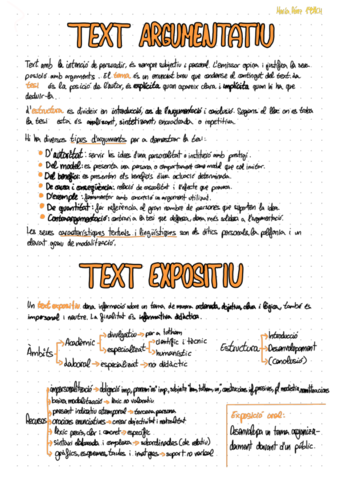 TEXT ARGUMENTATIU
Text amb la intenció de persuadir, és sempre subjectiu i personal. L'emissor opina i justifica la seva
posició amb arguments. El tema és un enunciat breu que condensa el contingut del text. La
tesi és la posició de l'autor, és explícita quan apareix clara i implícita quan hi ha que
deduir-la.
L'estructura es divideix en introducció, cos de l'argumentació i conclusió. Segons el lloc on es troba
la tesi esta és analitzant, sintetitzant, encerclada o repetitiva.
Hi ha diverses tipus d'arguments per a demostrar la tesi:
D'autoritat: servir les idees d'una personalitat o institució amb prestigi.
Del model: es presenta una persona o comportament com model que cal imitar.
Del benefici: es presenten els beneficis d'un actuació determinada.
De causa i conseqüència: relació de causalitat i l'efecte que provoca.
D'exemple: fonamentar amb concreció un argument utilitzat.
De quantitat: fer referència al gran nombre de persones que suporten la idea.
Contraargumentació: contrària a la tesi que defensa, dona més solidesa a l'argumentació.
Les seues característiques textuals i lingüístiques són els díctics personals, la polifonia i un
elevat grau de modalització.
TEXT EXPOSITIU
Un text expositiu dona informació sobre un tema, de manera ordenada, objectiva, clara i lògica, també és
impersonal i neutre. La finalitat és informativa didàctica.
Àmbits
Acadèmic
divulgatiu → per a tothom
especialitzat
científic i tècnic
humanístic
laboral → especialitzat → no didàctic
Estructura
Introducció
Desenvolupament
(Conclusió)
Recursos
baixa modalització → lèxic no valoratiu
present indicatiu atemporal → tercera persona
oracions enunciatives → crear objectivitat i neutralitat
lèxic precís, clar i concret → específic
sintaxi elaborada i complexa → subordinades (de relatiu)
gràfics, esquemes, taules i imatges → suport no verbal
Exposició oral:
Desenvolupa un tema organitza-
dament davant d'un públic.